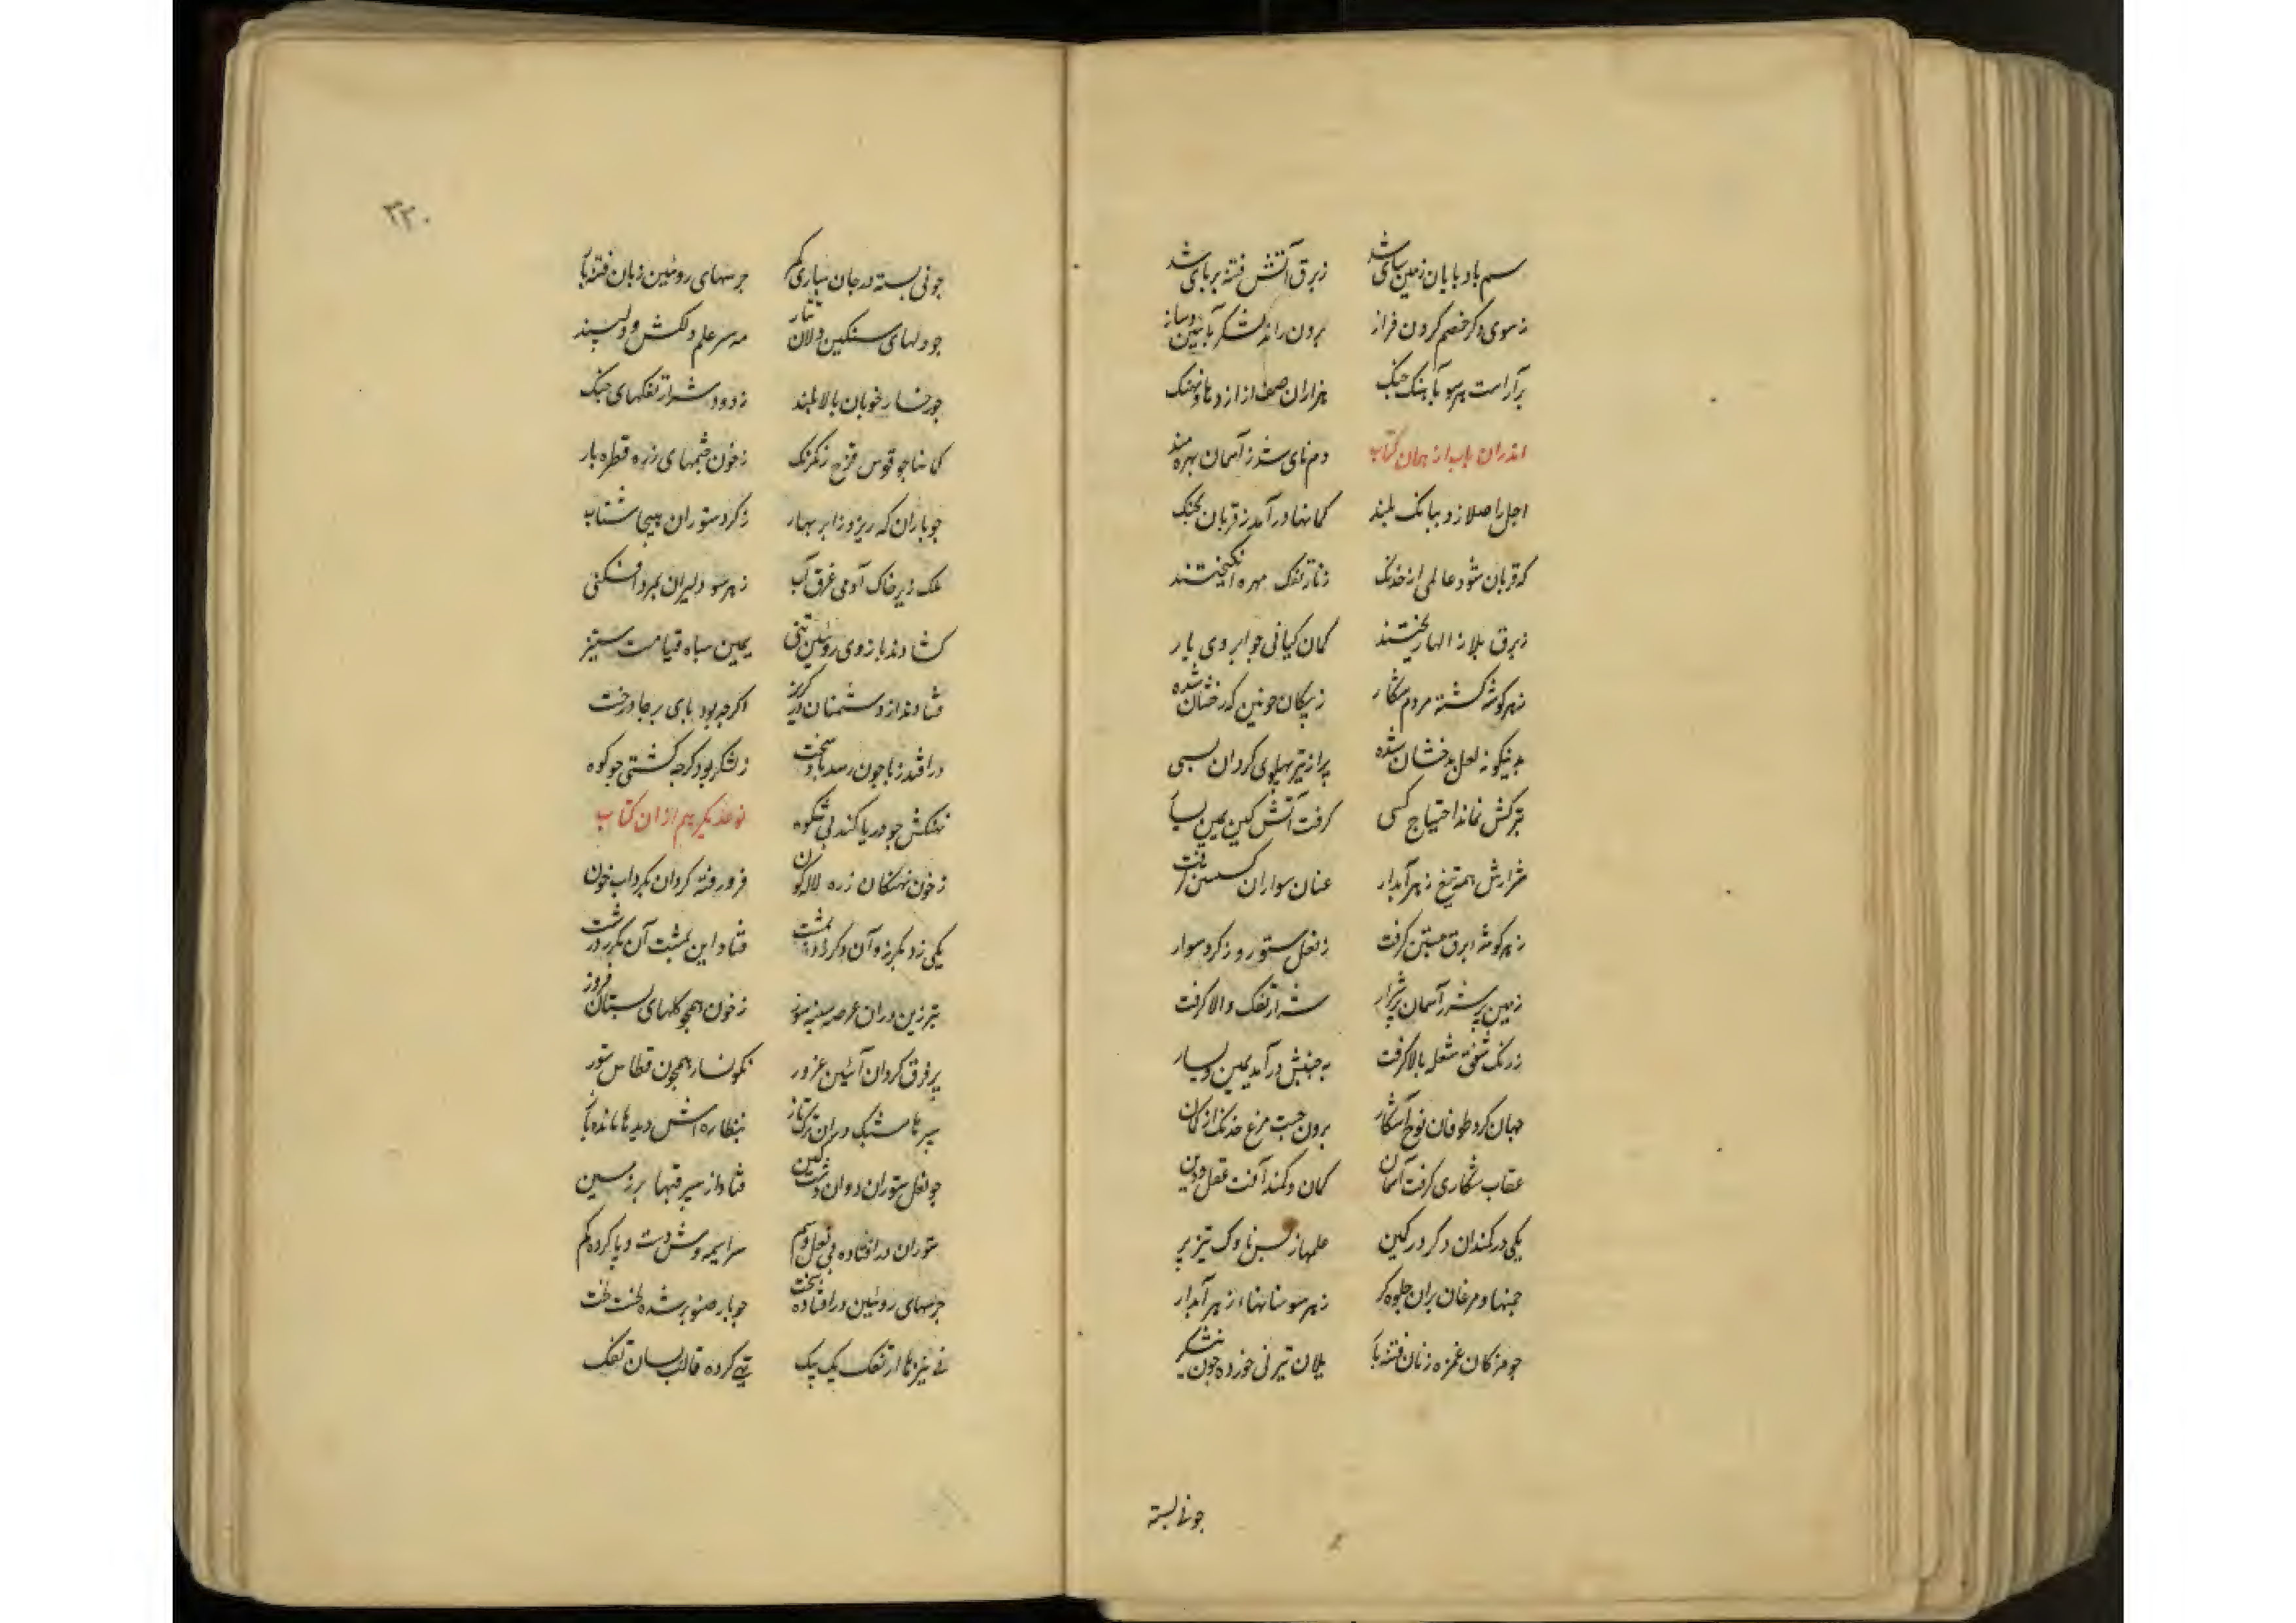 سم باد پایان زمین سای شد زبرق آتش فتنه بر پای شد
ز سوی دکر خصم کردن فراز برون راند لشکر بآیین و ساز
برآراست هر سو بآهنک جنک هزاران صف از اژدها و نهنک
اندران باب از همان کتاب دم نای شد ز آسمان بهره مند
اجل را صلا زد ببانک بلند کمانها در آمد ز قربان بجنک
که قربان شود عالمی از خدنک ز نار تفک مهره انکیختند
ز برق بلا ژالها ریختند کمان کیانی جو ابروی یار
بهر کوشه کشته مردم شکار ز پیکان خونین که رخشان شده
بدینکونه لعل بدخشان شده پر از تیر پهلوی کردان بسی
بترکش نماند احتیاج کسی کرفت آتش کین یمین و یسار
شرارش همه تیغ زهر آبدار عنان سواران کسستن کرفت
ز هر کوشه ابرق جستن کرفت ز نعل ستور و ز کرد سوار
زمین پر شرر آسمان پر شرار شرار تفک والا کرفت
ز رنک شفق شعله بالا کرفت به جنبش در آمد یمین و یسار
جهان کرد طوفان نوح آشکار برون جست مرغ خدنک از کمان
عقاب شکاری کرفت آسمان کمان و کمند آفت عقل و دین
یکی در کمند آن دکر در کمین علمها ز بس ناوک تیز پر
جمنها و مرغان بران جلوه کر ز هر سو سنانهاء زهر آبدار
جو مژکان غمزه زنان فتنه بار یلان تیر نی خورده جون نیشکر
جونی بسته
۳۳۰
جونی بسته در جان سپاری کمر جرسهای روئین زبان فتنه بار
جو دلهای سنکین دلان مه سر علم دلکش و دلپسند
جو رخسار خوبان بالا بلند ز دود و شرار تفکهای جنک
کمانها جو قوس قزح رنک رنک ز خون جشمهای زره قطره بار
جو باران که ریزد ز ابر بهار ز کرد ستوران هیجا شتاب
ملک زیر خاک آدمی غرق آب ز هر سو دلیران بمرد افکنی
کشادند بازوی روئین تنی یمین سپاه قیامت ستیز
فتادند از دشمنان در کریز اکرجه بود پای بر جا درخت
در افتد ز پا جون رسد باد سخت ز لشکر بود کرجه کشتی جو کوه
نهنکش جو دریا کند بی شکوه نوعدیکر هم از ان کتاب
ز خون نهنکان زره لاله کون فرو رفته کردان بکرداب خون
یکی زد بکرز و آن دکر زد بمشت فتاد این به پشت آن بکر در شت
تبرزین دران عرصه سینه سوز ز خون همجو کلهای بستان فروز
پر فرق کردان آئین غرور نکونسار همجون قطاس ستور
سپرها مشبک دران ترکتاز بنظاره اش دیدها مانده باز
جو نعل ستوران دوان دشت کین فتاد از سپر قبها بر زمین
ستوران در افتاده بی نعل و سم سراسیمه وش دست و پا کرده کم
جرسهای روئین در افتاده سخت جو بار صنوبر شده لخت لخت
نی نیزها از تفک یک بیک تهی کرده قالب بسان تفک